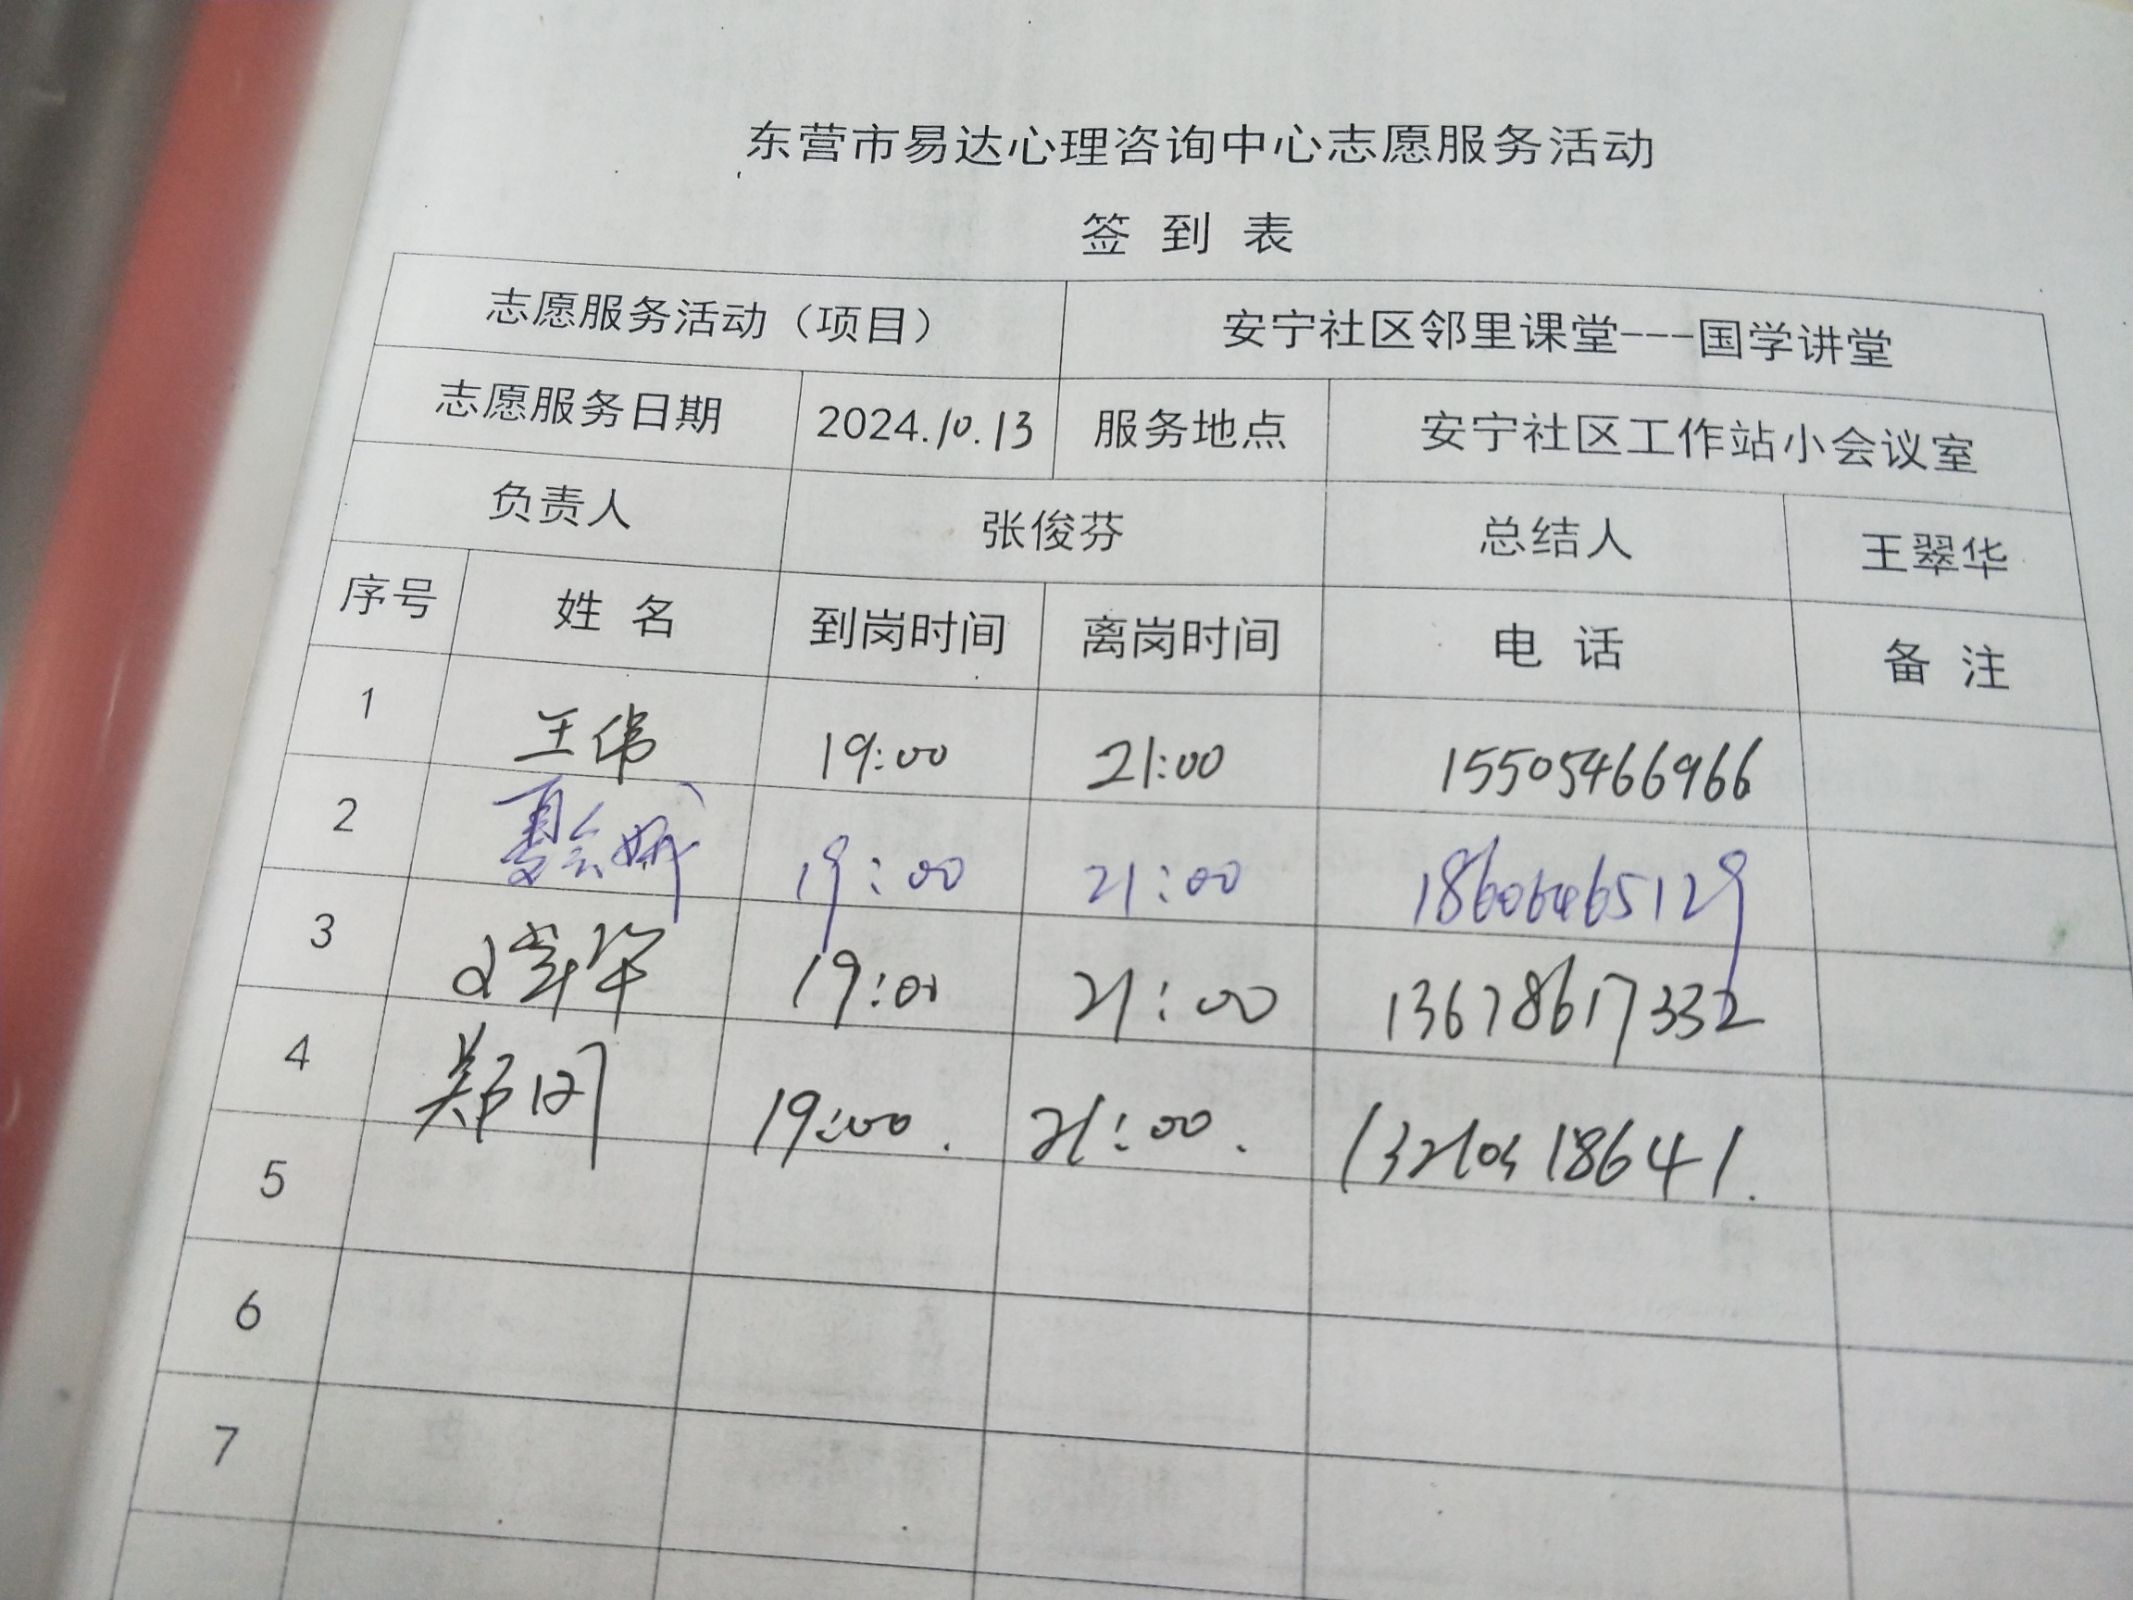 东营市易达心理咨询中心志愿服务活动
签 到 表
志愿服务活动（项目） 安宁社区邻里课堂---国学讲堂
志愿服务日期 2024.10.13 服务地点 安宁社区工作站小会议室
负责人 张俊芬 总结人 王翠华
序号 姓 名 到岗时间 离岗时间 电 话 备 注
1 王伟 19:00 21:00 15505466966
2 夏会娥 19:00 21:00 18606465129
3 19:00 21:00 13678617332
4 郑 19:00. 21:00.
5
6
7